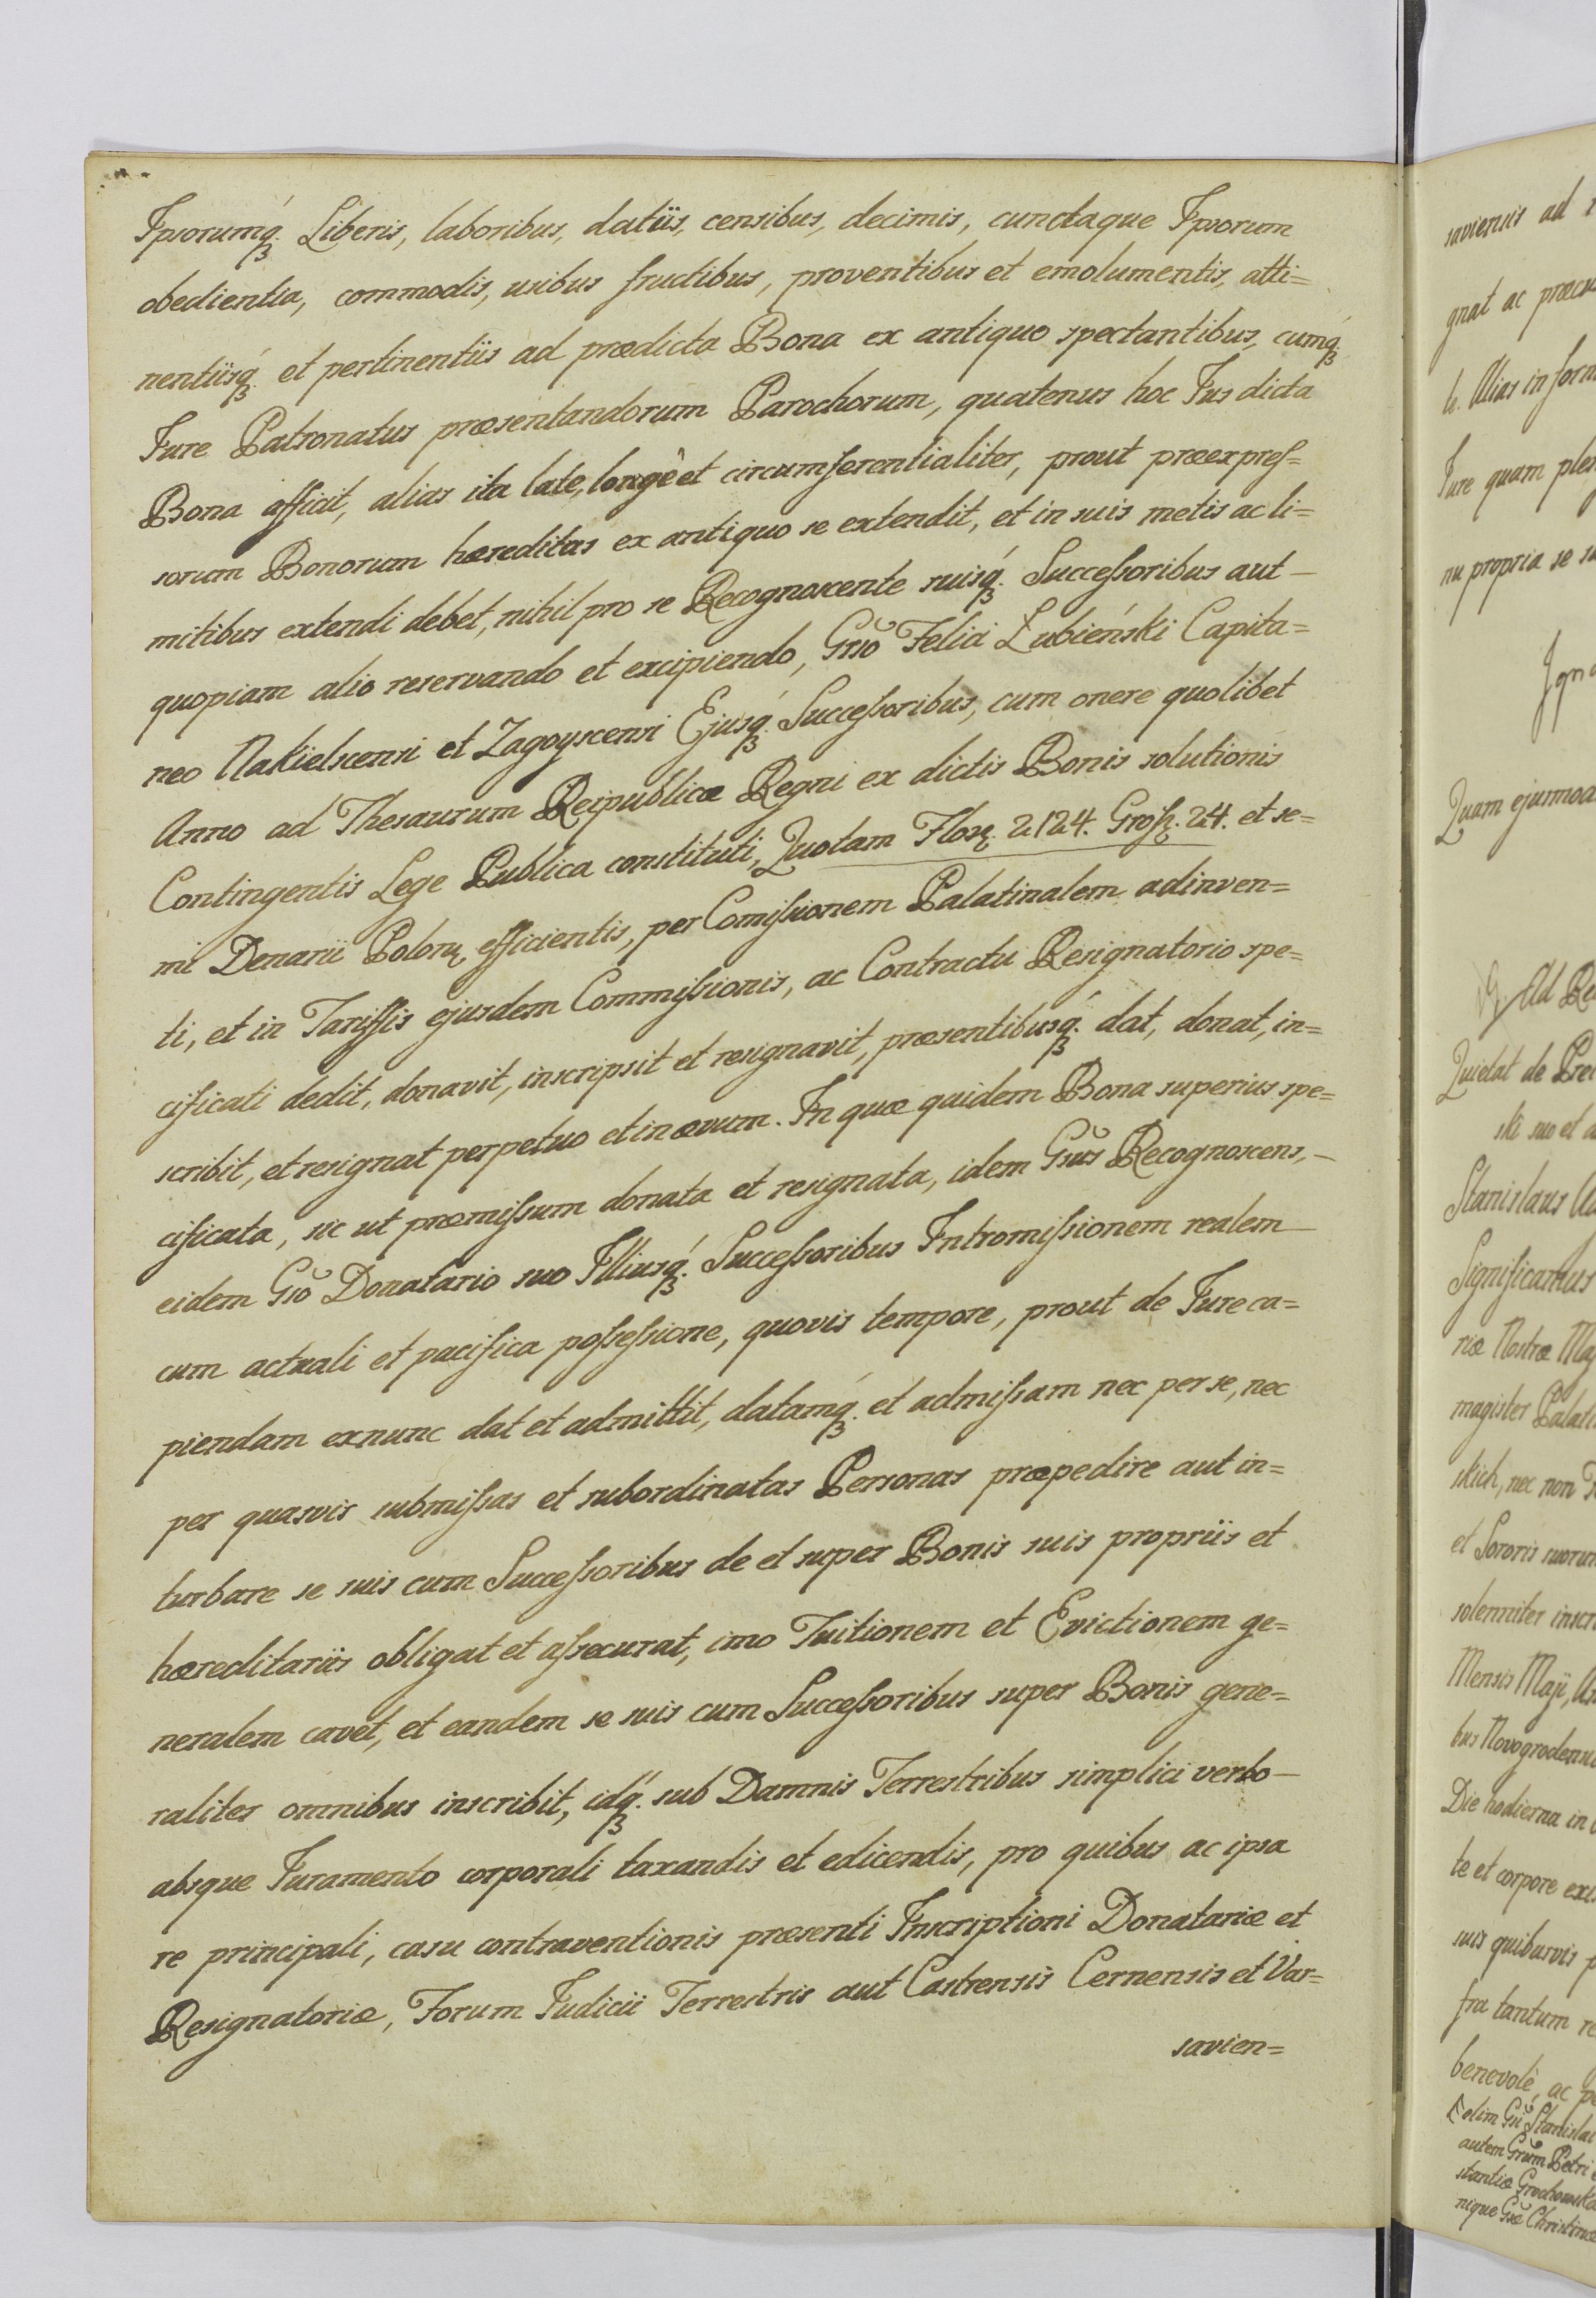 Ipsorumq́ꝫ Liberis, laboribus, datiis, censibus, decimis, cunctaque Ipsorum
obedientia, commodis, usibus fructibus, proventibus et emolumentis, atti=
nentiisq́ꝫ et pertinentiis ad prædicta Bona ex antiquo spectantibus, cumq́ꝫ
Jure Patronatus præsentandorum Parochorum, quatenus hoc Jus dicta
Bona afficit, alias ita late, longè et circumferentialiter, prout præexpreſ=
sorum Bonorum hæreditas ex antiquo se extendit, et in suis metis ac li=
mitibus extendi debet, nihil pro se Recognoscente suisq́ꝫ Succeſsoribus aut—
quopiam alio reservando et excipiendo, Grso Felici Łubieński Capita=
neo Nakielscensi et Zagoyscensi Ejusq́ꝫ Succeſsoribus, cum onere quolibet
Anno ad Thesaurum Reipublicæ Regni ex dictis Bonis solutionis
Contingentis Lege Publica constituti, Quotam Florꝫ. 2124. Groſsꝫ. 24. et se=
mi Denarii Polonꝫ efficientis, per Comiſsionem Palatinalem adinven=
ti, et in Tariffis ejusdem Commiſsionis, ac Contractu Resignatorio spe=
cificati dedit, donavit, inscripsit et resignavit, præsentibusq́ꝫ dat, donat, in=
scribit, et resignat perpetuo et in ævum. In quæ quidem Bona superius spe=
cificata, sic ut præmiſsum donata et resignata, idem Gsus Recognoscens,—
eidem Gso Donatario suo Illiusq́ꝫ Succeſsoribus Intromiſsionem realem—
cum actuali et pacifica poſseſsione, quovis tempore, prout de Jure ca=
piendam exnunc dat et admittit, datamq́ꝫ et admiſsam nec per se, nec
per quasvis submiſsas et subordinatas Personas præpedire aut in=
turbare se suis cum Succeſsoribus de et super Bonis suis propriis et
hæreditariis obligat et aſsecurat, imo Tuitionem et Evictionem ge=
neralem cavet, et eandem se suis cum Succeſsoribus super Bonis gene=
raliter omnibus inscribit, idq́ꝫ sub Damnis Terrestribus simplici verbo—
absque Juramento corporali taxandis et edicendis, pro quibus ac ipsa
re principali, casu contraventionis præsenti Inscriptioni Donatariæ et
Resignatoriæ, Forum Judicii Terrestris aut Castrensis Cernensis et Var=
savien=
saviensis ad
gnat ac
Alias in
Jure quam
nu propria se
Quam
Ad
Quietat de
ski suo et
Stanislaus
Significamus
riæ Nostræ
magister
skich, nec non
et Sororis
solenniter
Mensis Maji,
bus
Die hodierna in
te et corpore
suis quibusvis
fra tantum
benevolè, ac
olim Gsi Stanislai
autem Grsum Petri
stantiæ
nique Gsæ Christinæ